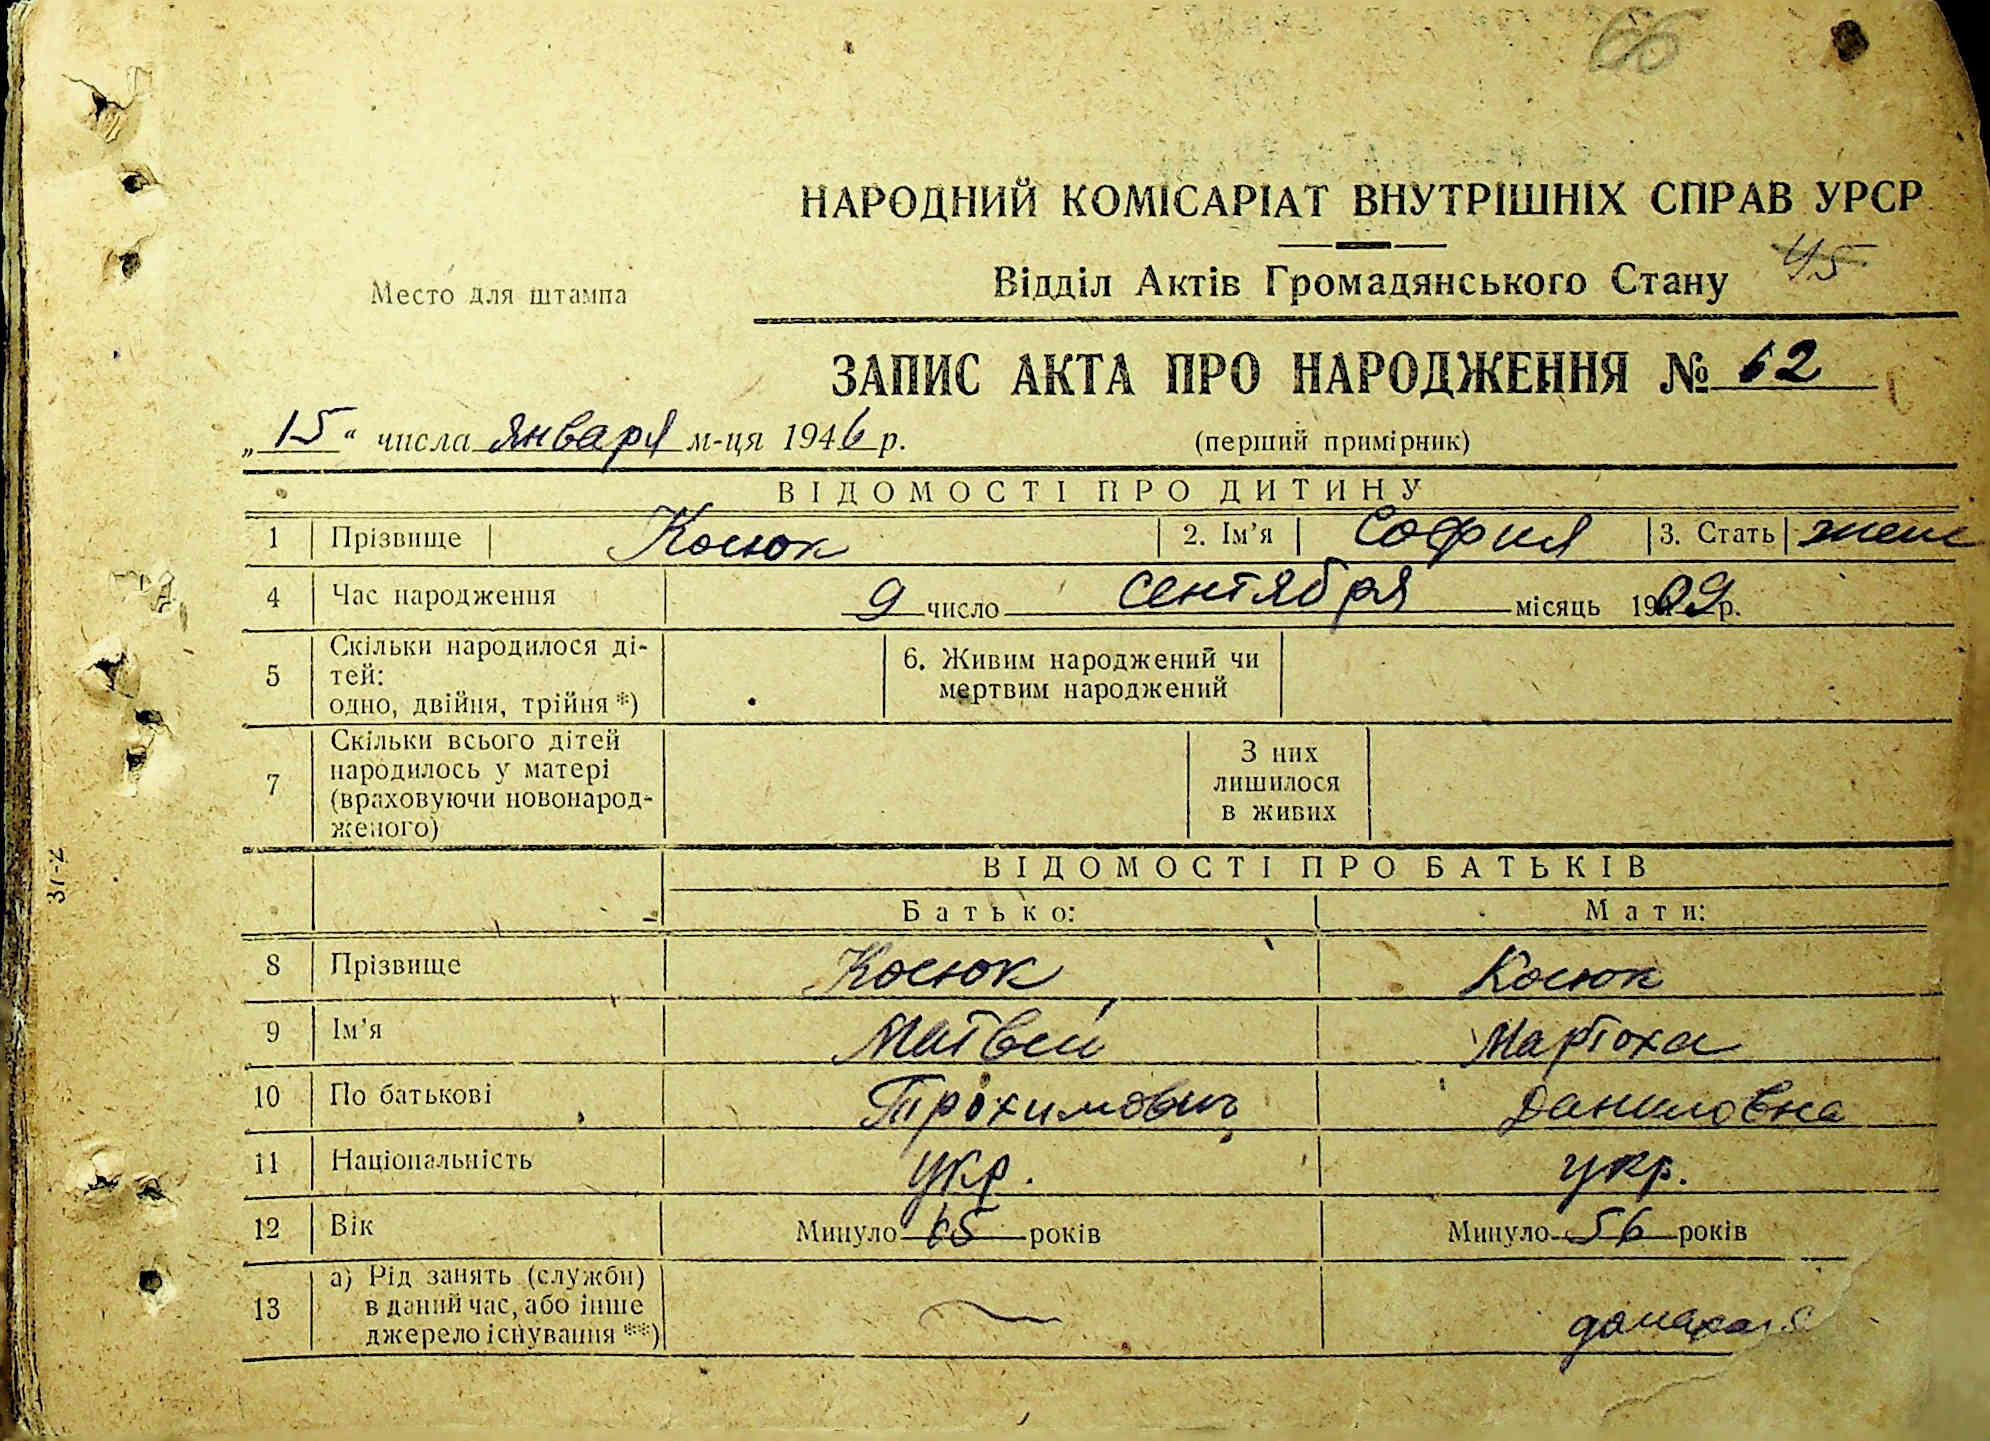 66
НАРОДНИЙ КОМІСАРІАТ ВНУТРІШНІХ СПРАВ УРСР
45
Место для штампа
Відділ Актів Громадянського Стану
ЗАПИС АКТА ПРО НАРОДЖЕННЯ № 62
„15“ числа января м-ця 1946 р.
(перший примірник)
ВІДОМОСТІ ПРО ДИТИНУ
1 Прізвище Косюк 2. Ім’я София 3. Стать жен
4 Час народження 9 число сентября місяць 1909 р.
5 Скільки народилося ді-
тей:
одно, двійня, трійня *)
6. Живим народжений чи
мертвим народжений
7 Скільки всього дітей
народилось у матері
(враховуючи новонарод-
женого)
З них
лишилося
в живих
ВІДОМОСТІ ПРО БАТЬКІВ
Батько: Мати:
8 Прізвище Косюк Косюк
9 Ім’я Матвей Мартоха
10 По батькові Трохимович Даниловна
11 Національність укр. укр.
12 Вік Минуло 65 років Минуло 56 років
13 а) Рід занять (служби)
в даний час, або інше
джерело існування **)
37-2